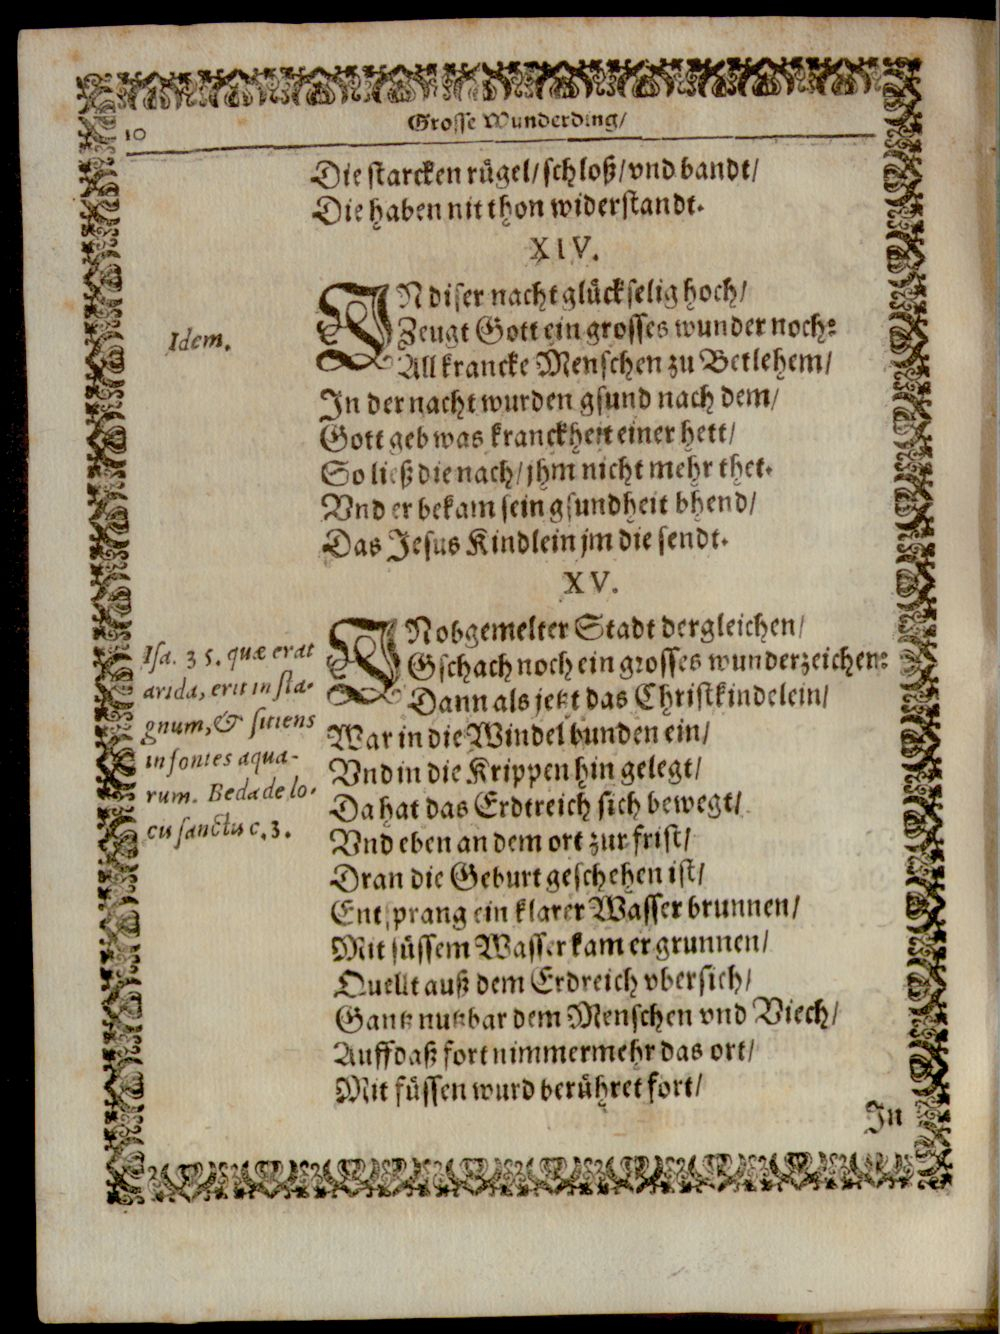 10
Grosse Wunderding/
Die starcken rügel/ schloß/ vnd bandt/
Die haben nit thon widerstandt.
XIV.
IN diser nacht glückselig hoch/
Zeugt Gott ein grosses wunder noch:
Idem.
All krancke Menschen zu Betlehem/
In der nacht wurden gsund nach dem/
Gott geb was kranckheit einer hett/
So ließ die nach/ jhm nicht mehr thet.
Vnd er bekam sein gsundheit bhend/
Das Jesus Kindlein jm die sendt.
XV.
IN obgemelter Stadt dergleichen/
Gschach noch ein grosses wunderzeichen:
Dann als jetzt das Christkindelein/
War in die Windel bunden ein/
Vnd in die Krippen hin gelegt/
Da hat das Erdtreich sich bewegt/
Vnd eben an dem ort zur frist/
Dran die Geburt geschehen ist/
Entsprang ein klarer Wasser brunnen/
Mit süssem Wasser kam er grunnen/
Quellt auß dem Erdreich vbersich/
Gantz nutzbar dem Menschen vnd Viech/
Auff daß fort nimmermehr das ort/
Mit füssen wurd berühret fort/
Isa. 35. quæ erat
arida, erit in sta-
gnum, & sitiens
in fontes aqua-
rum. Beda de lo-
cis sanctis c. 3.
In